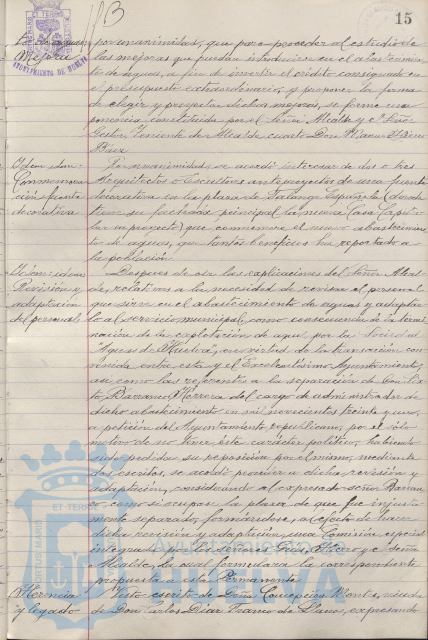 15
Mejora
por unanimidad, que para proceder al estudio de
las mejoras que puedan introducirse en el abastecimien
to de aguas, a fin de invertir el crédito consignado en
el presupuesto extraordinario, y proponer la forma
de elegir y proyectar dichas mejoras, se forme una
ponencia, constituida por el Señor Alcalde y el Señor
Gestor, Teniente de Alcalde cuarto Don Manuel
Idem idem
Conmemora
ción fuente
decorativa
Por unanimidad, se acordó interesar de dos o tres
Arquitectos o Escultores anteproyectos de una fuente
decorativa en la plaza de Falange Española (donde
tiene su fachada principal la nueva Casa Capitu
lar en proyecto) que conmemore el nuevo abastecimien
to de aguas, que tantos beneficios ha reportado a
la población.
Idem idem
Revisión y
adaptación
del personal
Despues de oir las explicaciones del Señor Alcal
de, relativas a la necesidad de revisar el personal
que sirve en el abastecimiento de aguas y adaptar
lo al servicio municipal, como consecuencia de la termi
nación de la explotación de aguas por la Sociedad
Aguas de Huelva, en virtud de la transacción con
venida entre esta y el Excelentísimo Ayuntamiento,
asi como las referentes a la separación de Don
Barranco Herrera del cargo de administrador de
dicho abastecimiento en mil novecientos treinta y uno,
a petición del Ayuntamiento republicano, por el solo
motivo de no tener este carácter político, habiendo
sido pedida su reposición por el mismo, mediante
dos escritos, se acordó proceder a dicha revisión y
adaptación, considerando al expresado señor Barran
co, como si ocupase la plaza de que fue injusta
mente separado, formándose, al efecto de hacer
dicha revisión y adaptación, una Comisión especial
integrada por los señores
Alcalde, la cual formulará la correspondiente
propuesta a esta Permanente.
Herencia
y legado
Visto escrito de Doña Concepción Montis, viuda
de Don Carlos Díaz Franco de Llanos, expresando
AYUNTAMIENTO DE HUELVA
Ayuntamiento de
HUELVA